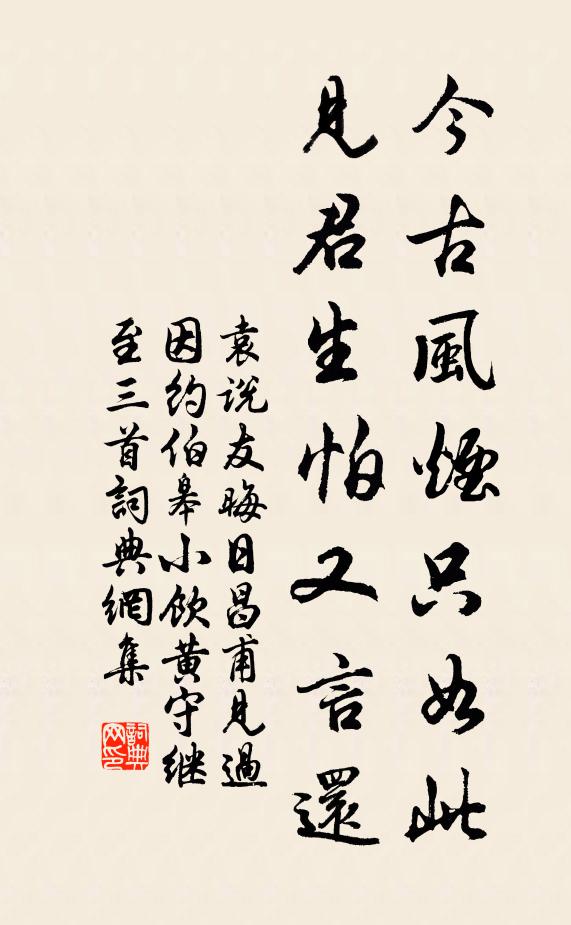 今古風煙只如此
見君生怕又言還
袁说友晦日昌甫見過
因約伯皋小飲黄守继
至三首詞典網集
詞典
网印